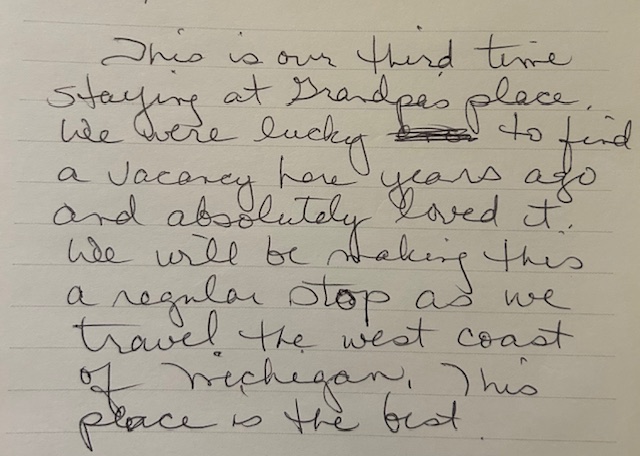 This is our third time
staying at Grandpas place.
We were lucky to find
a vacancy here years ago
and absolutely loved it.
We will be making this
a regular stop as we
travel the west coast
of Michigan. This
place is the best.